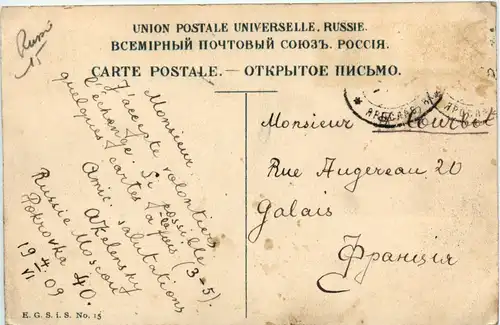 Russ
15
UNION POSTALE UNIVERSELLE. RUSSIE.
ВСЕМІРНЫЙ ПОЧТОВЫЙ СОЮЗЪ. РОССІЯ.
CARTE POSTALE.—ОТКРЫТОЕ ПИСЬМО.
Monsieur.
J'accepte volontiers
l'échange. Si possible
quelques cartes
Amic. salutations
Russie Moscou
Pokrovka 40.
19 4/VI 09
E. G. S. i. S. No. 15
Monsieur Courbot
Rue Augereau 20
Calais
Франція